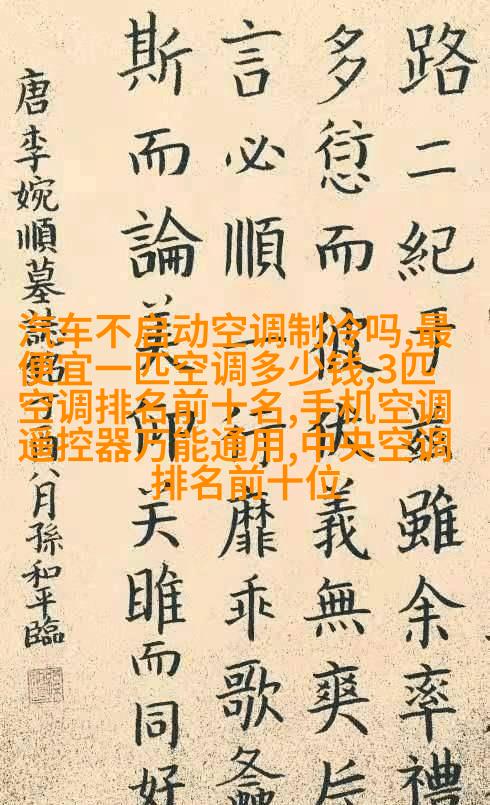 路二紀于茲雖余率禮
多愆而彼義無爽
言必順行靡乖歌螽
斯而論美仰关雎而同好
唐李婉順墓誌酉八月孫和平臨
汽车不启动空调制冷吗,最
便宜一匹空调多少钱,3匹
空调排名前十名,手机空调
遥控器万能通用,中央空调
排名前十位